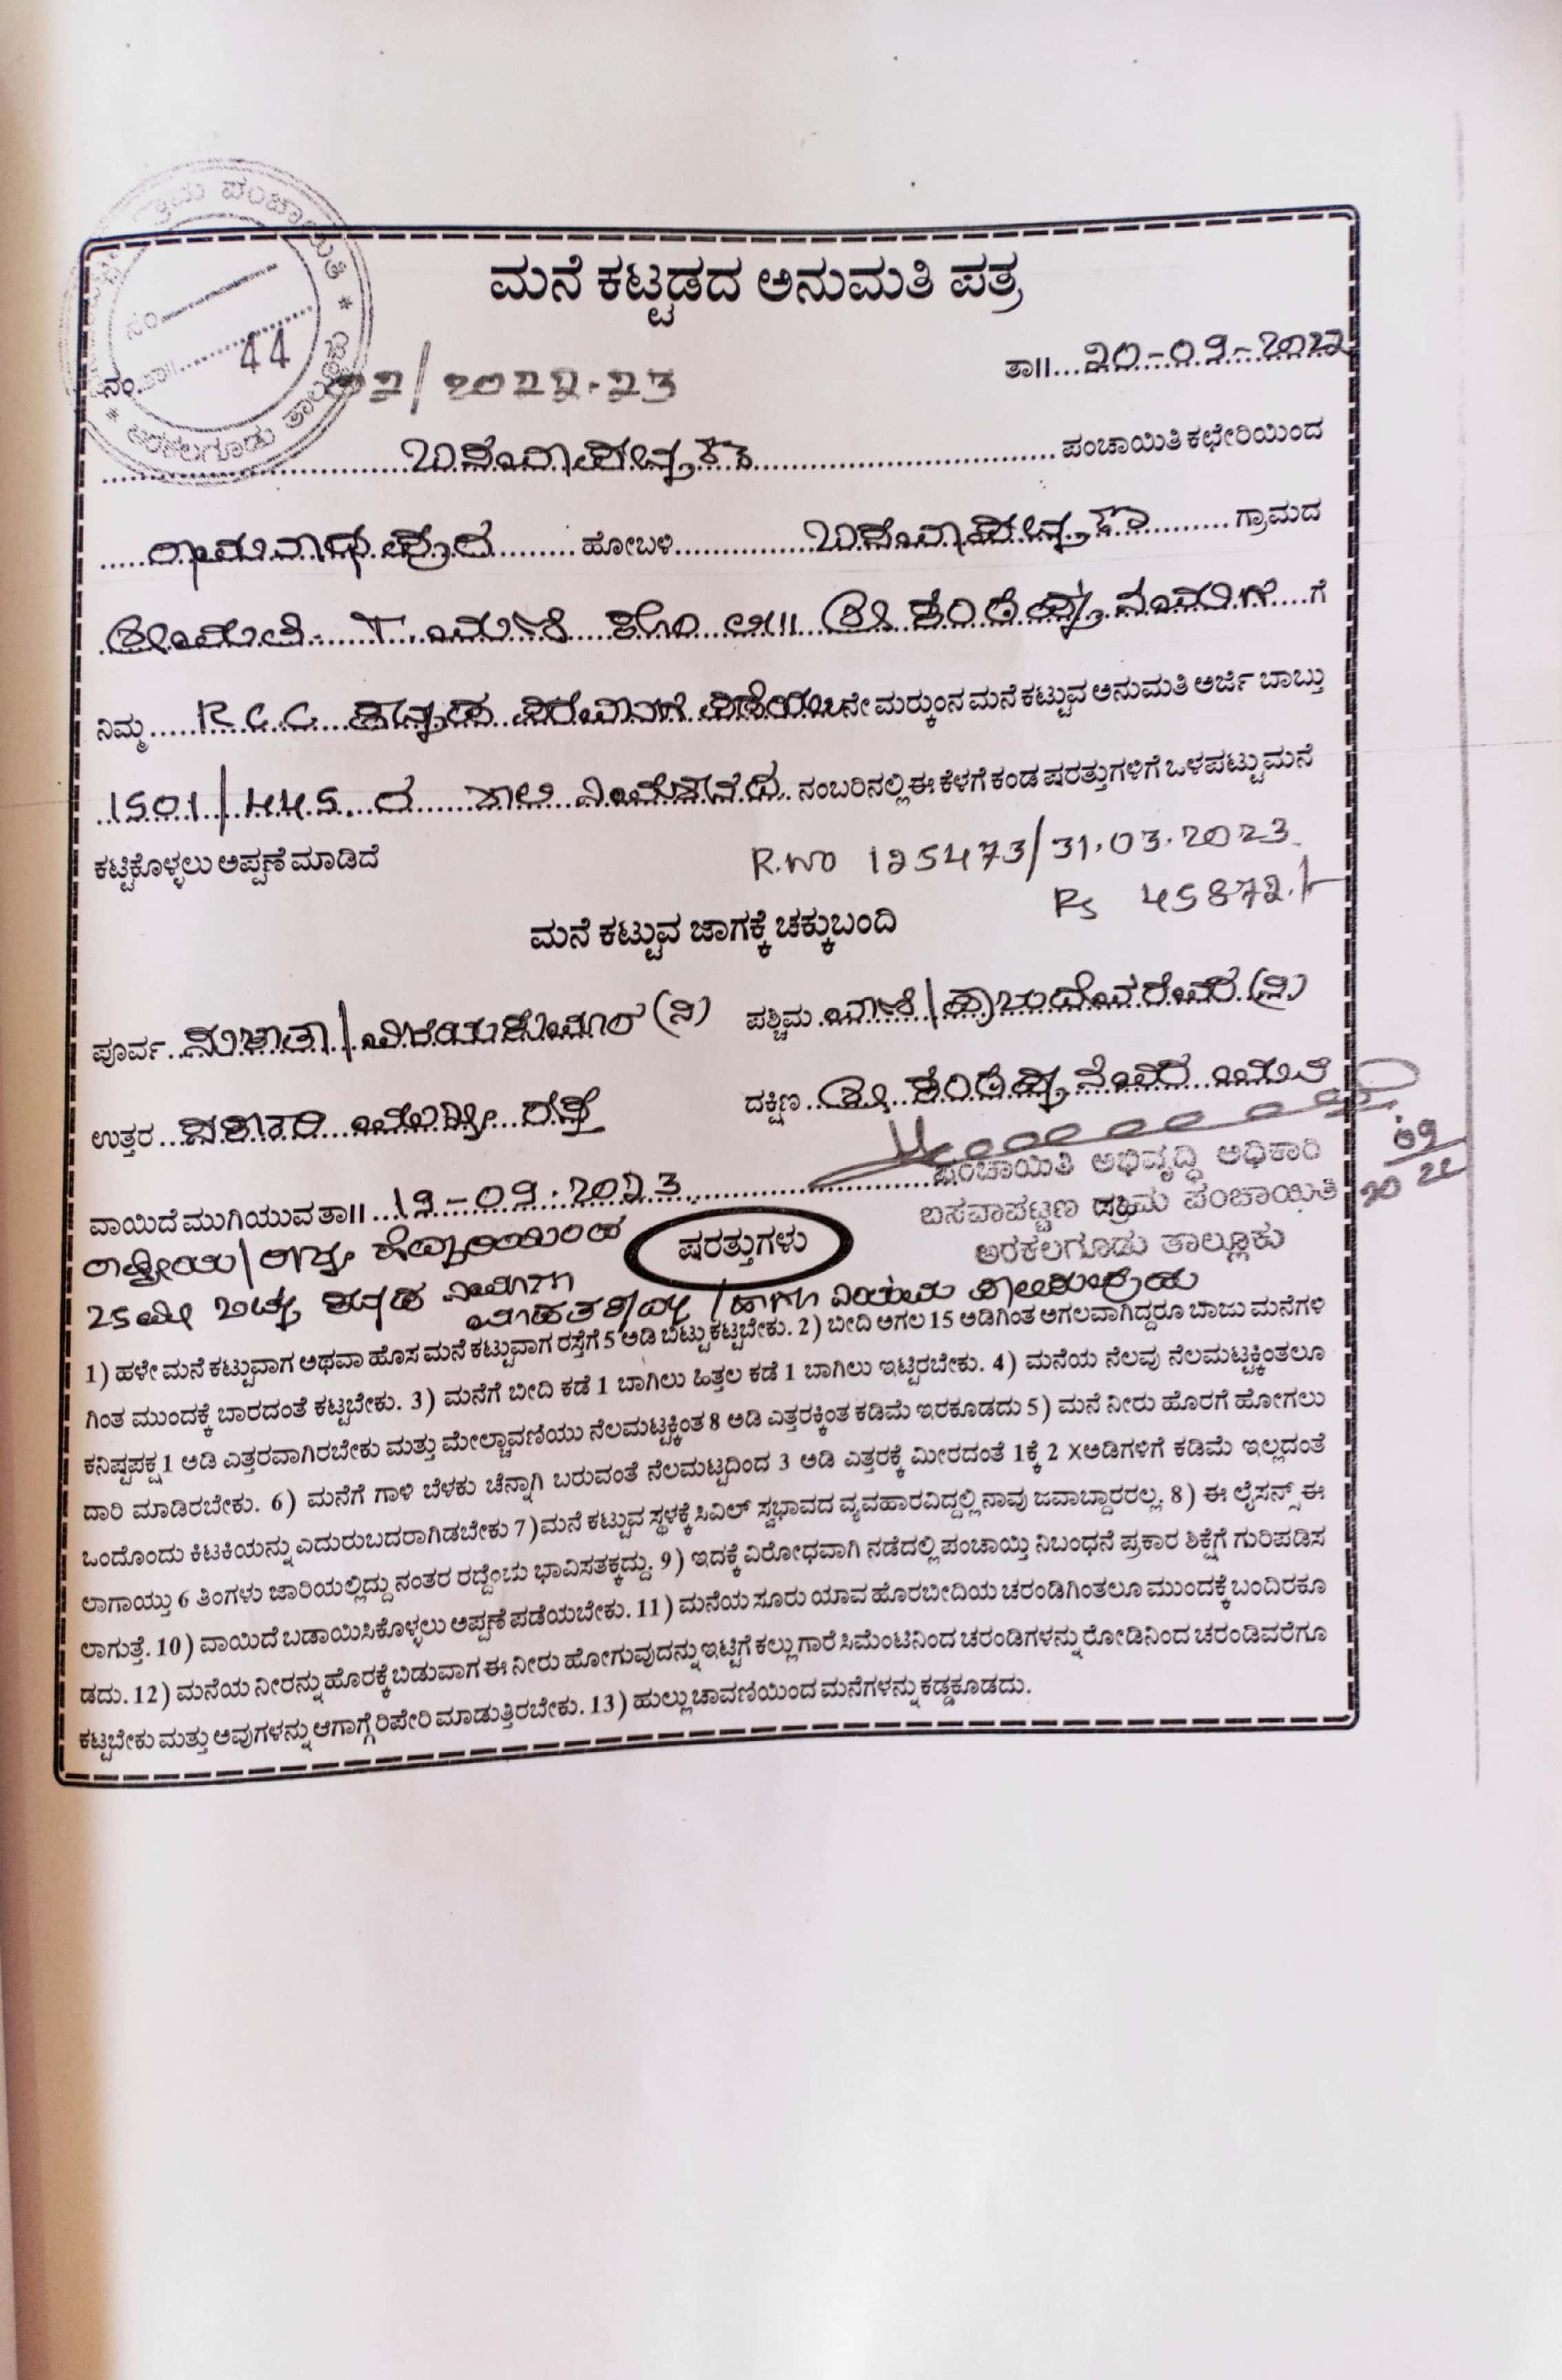 ಗ್ರಾಮ ಪಂಚಾಯಿತಿ * ಅರಕಲಗೂಡು ತಾಲ್ಲೂಕು *
ಮನೆ ಕಟ್ಟಡದ ಅನುಮತಿ ಪತ್ರ
ನಂ. 44
ನಂ. 02/2022-23 ತಾ॥ 20-09-2022
ಬಸವಾಪಟ್ಟಣ ಪಂಚಾಯಿತಿ ಕಛೇರಿಯಿಂದ
ರಾಮನಾಥಪುರ ಹೋಬಳಿ ಬಸವಾಪಟ್ಟಣ ಗ್ರಾಮದ
ಶ್ರೀಮತಿ T. ಕೋಂ ಗೆ
ನಿಮ್ಮ R.C.C ಕಟ್ಟಡ ನೇ ಮರ್‍ಕುಂನ ಮನೆ ಕಟ್ಟುವ ಅನುಮತಿ ಅರ್ಜಿ ಬಾಬ್ತು
1501/445 ರ ಖಾಲಿ ನಿವೇಶನದ ನಂಬರಿನಲ್ಲಿ ಈ ಕೆಳಗೆ ಕಂಡ ಷರತ್ತುಗಳಿಗೆ ಒಳಪಟ್ಟು ಮನೆ
ಕಟ್ಟಿಕೊಳ್ಳಲು ಅಪ್ಪಣೆ ಮಾಡಿದೆ R.No 125473/31.03.2023
Rs 45872/-
ಮನೆ ಕಟ್ಟುವ ಜಾಗಕ್ಕೆ ಚಕ್ಕುಬಂದಿ
ಪೂರ್ವ ಸುಜಾತಾ/ವಿಜಯಕುಮಾರ್ (ನಿ) ಪಶ್ಚಿಮ
ಉತ್ತರ ರಸ್ತೆ ದಕ್ಷಿಣ
ಪಂಚಾಯಿತಿ ಅಭಿವೃದ್ಧಿ ಅಧಿಕಾರಿ
ವಾಯಿದೆ ಮುಗಿಯುವ ತಾ॥ 19-09-2023 ಬಸವಾಪಟ್ಟಣ ಗ್ರಾಮ ಪಂಚಾಯಿತಿ
ಅರಕಲಗೂಡು ತಾಲ್ಲೂಕು
ರಾಷ್ಟ್ರೀಯ/ರಾಜ್ಯ ಹೆದ್ದಾರಿಯಿಂದ ಷರತ್ತುಗಳು
25ಮೀ ಬಿಟ್ಟು ಕಟ್ಟಡ
1) ಹಳೇ ಮನೆ ಕಟ್ಟುವಾಗ ಅಥವಾ ಹೊಸ ಮನೆ ಕಟ್ಟುವಾಗ ರಸ್ತೆಗೆ 5 ಅಡಿ ಬಿಟ್ಟು ಕಟ್ಟಬೇಕು. 2) ಬೀದಿ ಅಗಲ 15 ಅಡಿಗಿಂತ ಅಗಲವಾಗಿದ್ದರೂ ಬಾಜು ಮನೆಗಳಿ
ಗಿಂತ ಮುಂದಕ್ಕೆ ಬಾರದಂತೆ ಕಟ್ಟಬೇಕು. 3) ಮನೆಗೆ ಬೀದಿ ಕಡೆ 1 ಬಾಗಿಲು ಹಿತ್ತಲ ಕಡೆ 1 ಬಾಗಿಲು ಇಟ್ಟಿರಬೇಕು. 4) ಮನೆಯ ನೆಲವು ನೆಲಮಟ್ಟಕ್ಕಿಂತಲೂ
ಕನಿಷ್ಟಪಕ್ಷ 1 ಅಡಿ ಎತ್ತರವಾಗಿರಬೇಕು ಮತ್ತು ಮೇಲ್ಚಾವಣಿಯು ನೆಲಮಟ್ಟಕ್ಕಿಂತ 8 ಅಡಿ ಎತ್ತರಕ್ಕಿಂತ ಕಡಿಮೆ ಇರಕೂಡದು 5) ಮನೆ ನೀರು ಹೊರಗೆ ಹೋಗಲು
ದಾರಿ ಮಾಡಿರಬೇಕು. 6) ಮನೆಗೆ ಗಾಳಿ ಬೆಳಕು ಚೆನ್ನಾಗಿ ಬರುವಂತೆ ನೆಲಮಟ್ಟದಿಂದ 3 ಅಡಿ ಎತ್ತರಕ್ಕೆ ಮೀರದಂತೆ 1ಕ್ಕೆ 2 Xಅಡಿಗಳಿಗೆ ಕಡಿಮೆ ಇಲ್ಲದಂತೆ
ಒಂದೊಂದು ಕಿಟಕಿಯನ್ನು ಎದುರುಬದರಾಗಿಡಬೇಕು 7)ಮನೆ ಕಟ್ಟುವ ಸ್ಥಳಕ್ಕೆ ಸಿವಿಲ್ ಸ್ವಭಾವದ ವ್ಯವಹಾರವಿದ್ದಲ್ಲಿ ನಾವು ಜವಾಬ್ದಾರರಲ್ಲ. 8) ಈ ಲೈಸನ್ಸ್ ಈ
ಲಾಗಾಯ್ತು 6 ತಿಂಗಳು ಜಾರಿಯಲ್ಲಿದ್ದು ನಂತರ ರದ್ದೆಂಬು ಭಾವಿಸತಕ್ಕದ್ದು. 9) ಇದಕ್ಕೆ ವಿರೋಧವಾಗಿ ನಡೆದಲ್ಲಿ ಪಂಚಾಯ್ತಿ ನಿಬಂಧನೆ ಪ್ರಕಾರ ಶಿಕ್ಷೆಗೆ ಗುರಿಪಡಿಸ
ಲಾಗುತ್ತೆ. 10) ವಾಯಿದೆ ಬಡಾಯಿಸಿಕೊಳ್ಳಲು ಅಪ್ಪಣೆ ಪಡೆಯಬೇಕು. 11) ಮನೆಯ ಸೂರು ಯಾವ ಹೊರಬೀದಿಯ ಚರಂಡಿಗಿಂತಲೂ ಮುಂದಕ್ಕೆ ಬಂದಿರಕೂ
ಡದು. 12) ಮನೆಯ ನೀರನ್ನು ಹೊರಕ್ಕೆ ಬಿಡುವಾಗ ಈ ನೀರು ಹೋಗುವುದನ್ನು ಇಟ್ಟಿಗೆ ಕಲ್ಲು ಗಾರೆ ಸಿಮೆಂಟಿನಿಂದ ಚರಂಡಿಗಳನ್ನು ರೋಡಿನಿಂದ ಚರಂಡಿವರೆಗೂ
ಕಟ್ಟಬೇಕು ಮತ್ತು ಅವುಗಳನ್ನು ಆಗಾಗ್ಗೆ ರಿಪೇರಿ ಮಾಡುತ್ತಿರಬೇಕು. 13) ಹುಲ್ಲು ಚಾವಣಿಯಿಂದ ಮನೆಗಳನ್ನು ಕಡ್ಡಕೂಡದು.